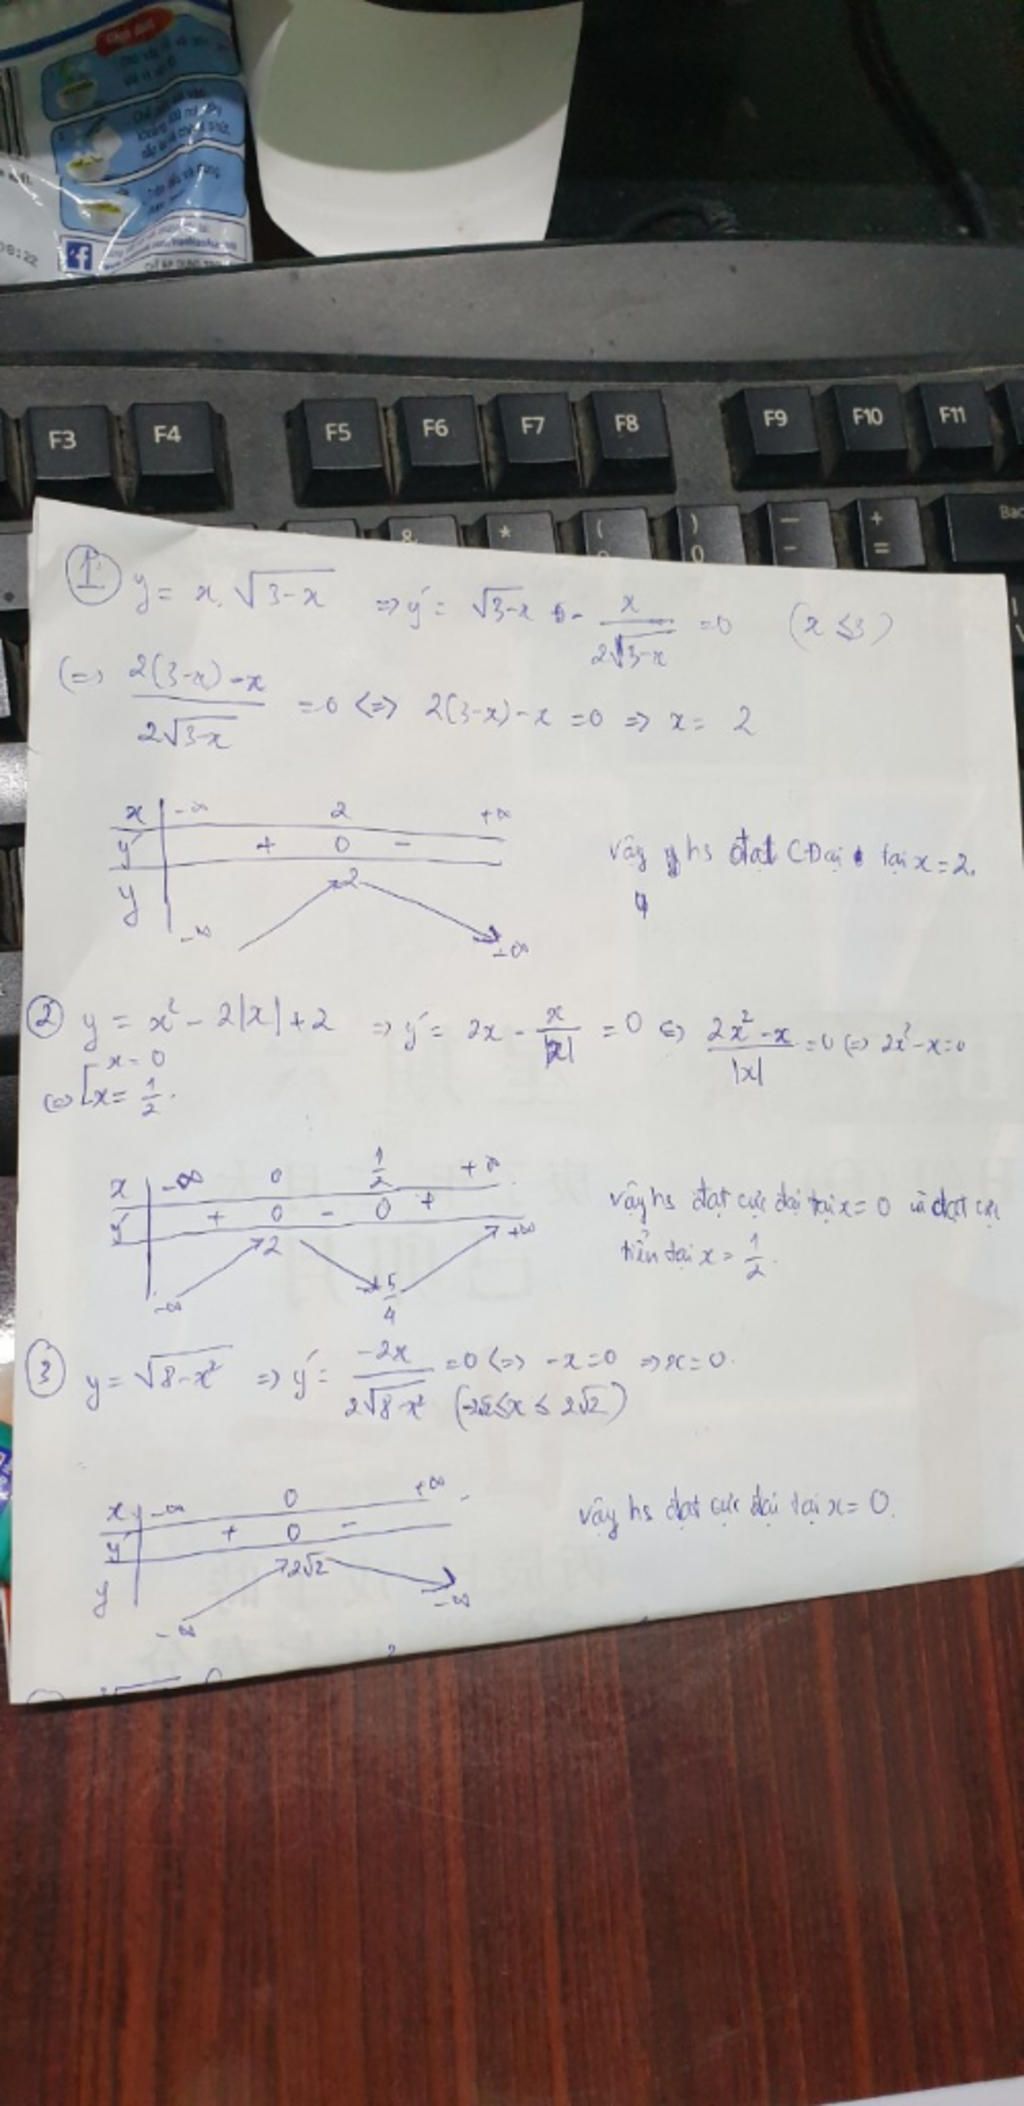 08:22
F3 F4 F5 F6 F7 F8 F9 F10 F11
& * ( ) — +
0 - =
Bac
① y = x.√(3-x) => y' = √(3-x) - x/(2√(3-x)) = 0 (x ≤ 3)
(=) (2(3-x)-x)/(2√(3-x)) = 0 <=> 2(3-x)-x = 0 => x = 2
x | -∞ 2 +∞
y' | + 0 -
y | -∞ 2 -∞
vậy hs đạt CĐại tại x = 2.
② y = x² - 2|x| + 2 => y' = 2x - x/|x| = 0 (=) (2x²-x)/|x| = 0 (=) 2x²-x = 0
(=) [ x = 0
x = 1/2.
x | -∞ 0 1/2 +∞
y' | + 0 - 0 +
-∞ 2 5/4 +∞
vậy hs đạt cực đại tại x = 0 và đạt cực
tiểu tại x = 1/2.
③ y = √(8-x²) => y' = -2x/(2√(8-x²)) = 0 <=> -x = 0 => x = 0.
(-2√2 ≤ x ≤ 2√2)
x | -∞ 0 +∞
y' | + 0 -
y | -∞ 2√2 -∞
vậy hs đạt cực đại tại x = 0.